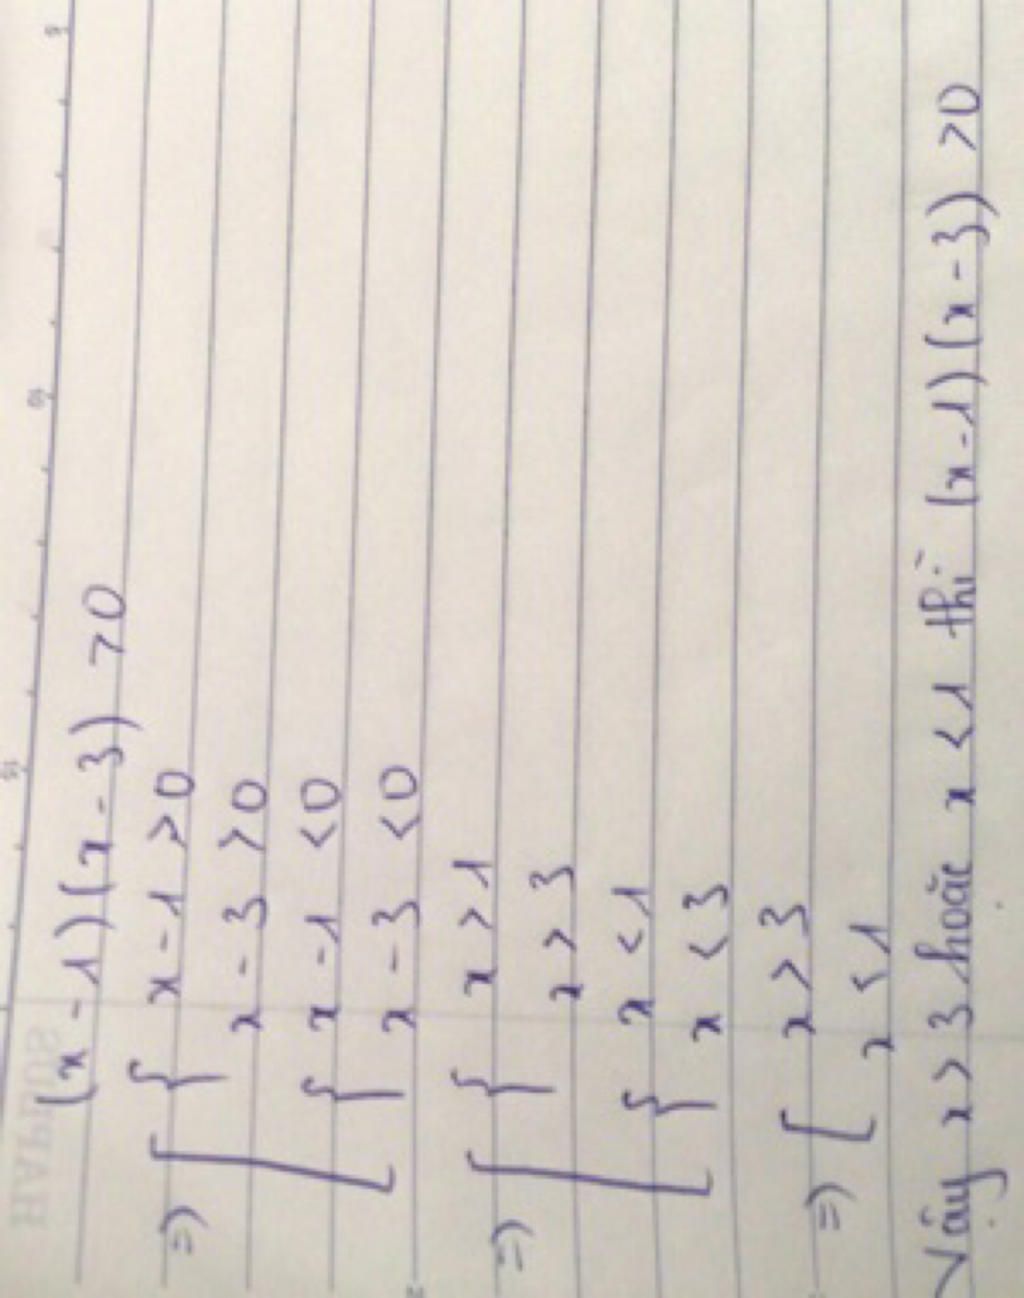 (x - 1)(x - 3) > 0
=> [ { x - 1 > 0
x - 3 > 0
{ x - 1 < 0
x - 3 < 0
=> [ { x > 1
x > 3
{ x < 1
x < 3
=> [ x > 3
x < 1
Vậy x > 3 hoặc x < 1 thì (x - 1)(x - 3) > 0
5
10
15